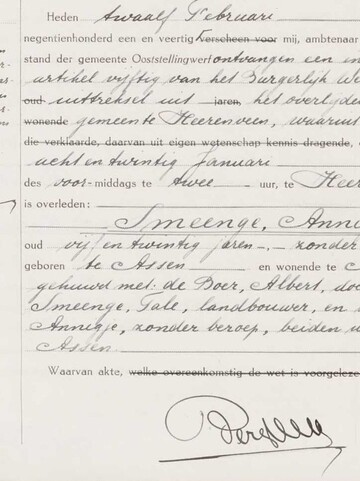 Heden twaalf Februari
negentienhonderd een en veertig Verscheen voor mij, ambtenaar
stand der gemeente Ooststellingwerf ontvangen een
artikel vijftig van het Burgerlijk We
oud uittreksel uit jaren, het overlijde
wonende gemeente Heerenveen, waaruit
die verklaarde, daarvan uit eigen wetenschap kennis dragende,
acht en twintig Januari
des voor-middags te twee uur, te Heer
is overleden:
Smeenge, Anni
oud vijf en twintig jaren, zonder
geboren te Assen en wonende te
gehuwd met de Boer, Albert, do
Smeenge, Tale, landbouwer, en
Annigje, zonder beroep, beiden
Assen.
Waarvan akte, welke overeenkomstig de wet is voorgeleze